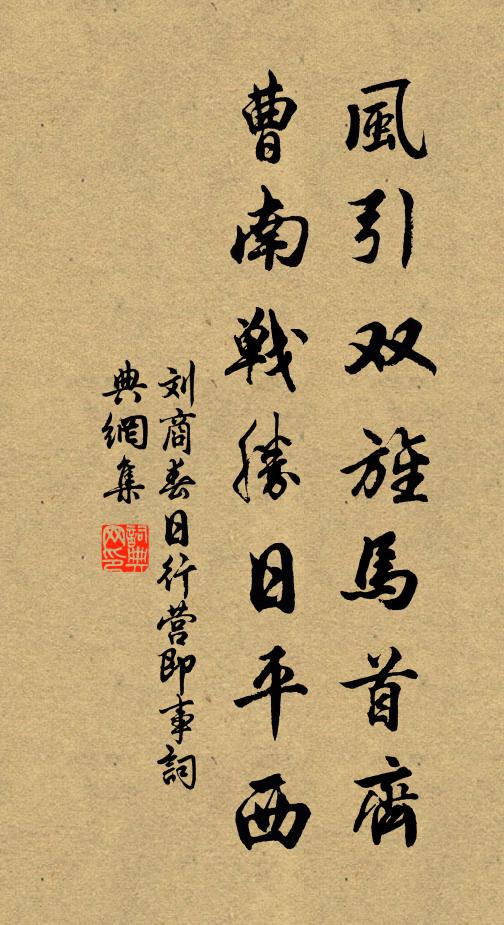 風引双旌馬首齊
曹南戰勝日平西
刘商春日行营即事詞
典網集
詞典網印